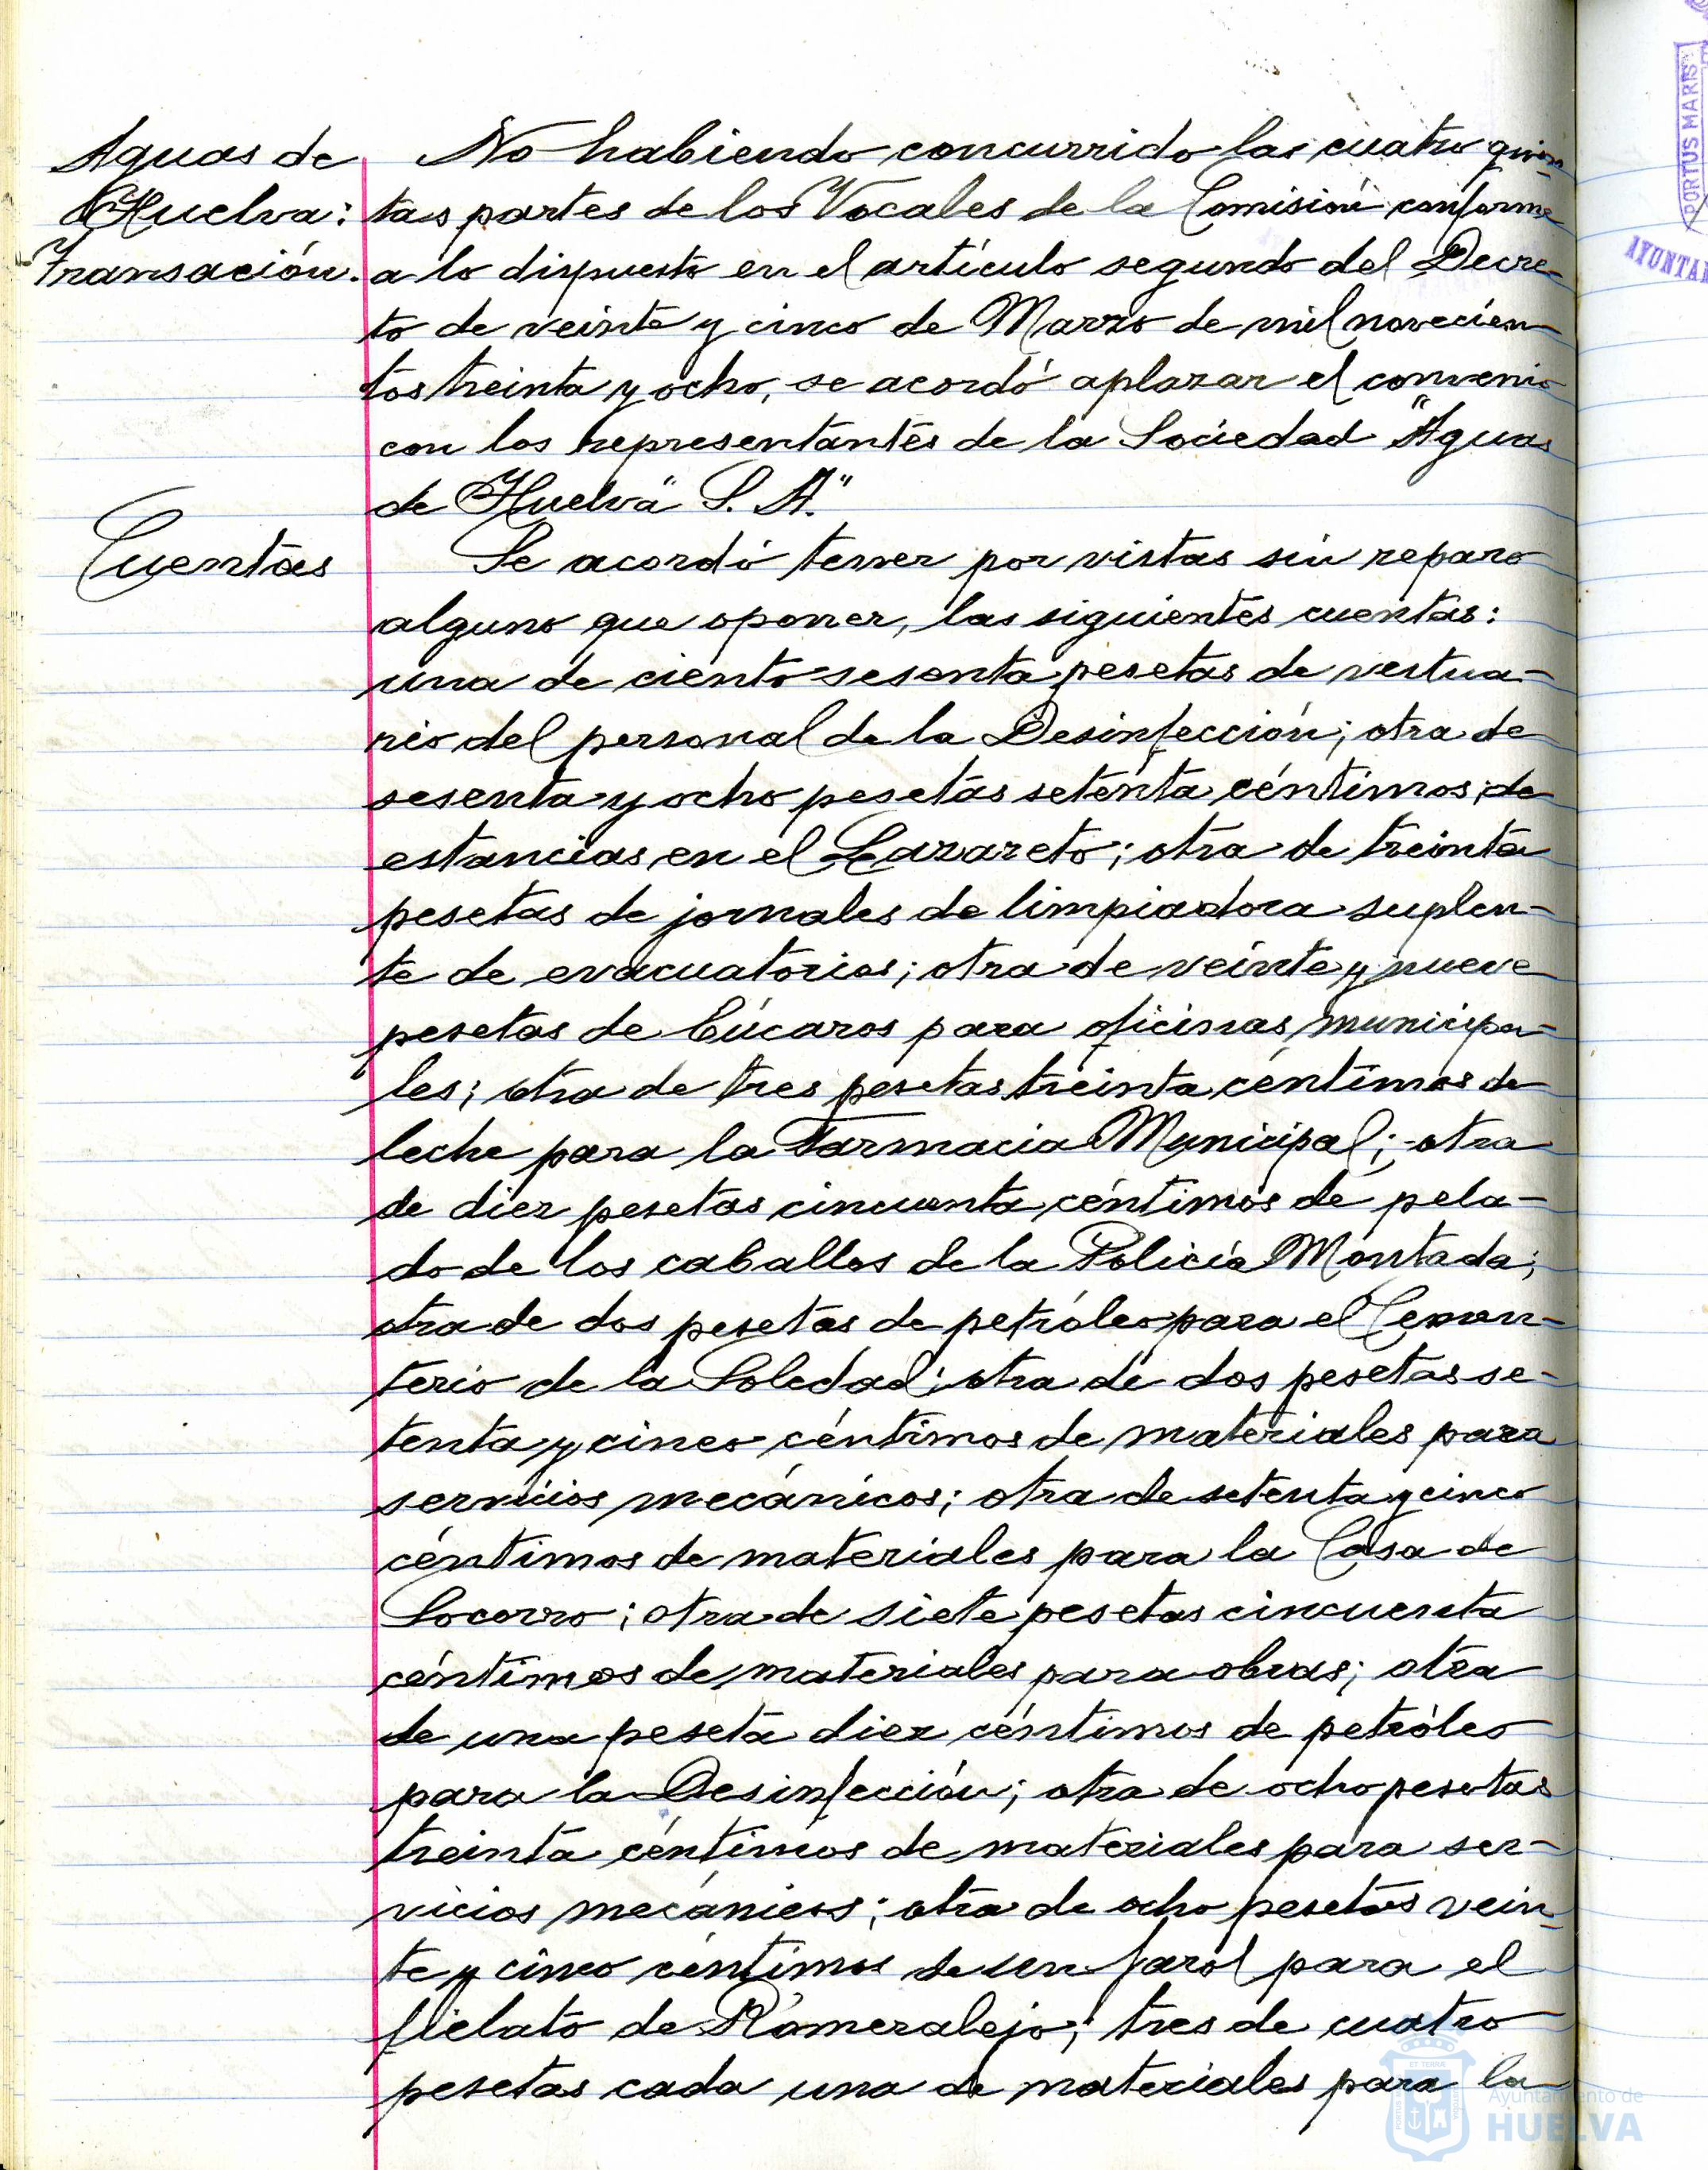 Aguas de
Huelva:
Transación.
No habiendo concurrido las cuatro quin-
tas partes de los Vocales de la Comisión conforme
a lo dispuesto en el artículo segundo del Decre-
to de veinte y cinco de Marzo de mil novecien-
tos treinta y ocho, se acordó aplazar el convenio
con los representantes de la Sociedad "Aguas
de Huelva" S. A."
Cuentas
Se acordó tener por vistas sin reparo
alguno que oponer, las siguientes cuentas:
una de ciento sesenta pesetas de vestua-
rio del personal de la Desinfección; otra de
sesenta y ocho pesetas setenta céntimos de
estancias en el Lazareto; otra de treinta
pesetas de jornales de limpiadora suplen-
te de evacuatorios; otra de veinte y nueve
pesetas de búcaros para oficinas municipa-
les; otra de tres pesetas treinta céntimos de
leche para la Farmacia Municipal; otra
de diez pesetas cincuenta céntimos de pela-
do de los caballos de la Policía Montada;
otra de dos pesetas de petróleo para el Cemen-
terio de la Soledad; otra de dos pesetas se-
tenta y cinco céntimos de materiales para
servicios mecánicos; otra de setenta y cinco
céntimos de materiales para la Casa de
Socorro; otra de siete pesetas cincuenta
céntimos de materiales para obras; otra
de una peseta diez céntimos de petróleo
para la Desinfección; otra de ocho pesetas
treinta céntimos de materiales para ser-
vicios mecánicos; otra de ocho pesetas vein-
te y cinco céntimos de un farol para el
fielato de Romeralejo; tres de cuatro
pesetas cada una de materiales para la
PORTUS MARIS
Ayuntamiento de
HUELVA